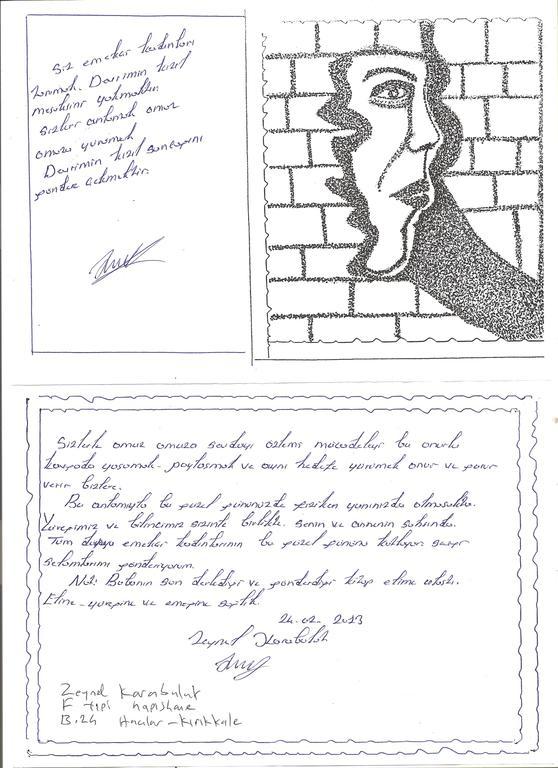 Siz emekçi kadınları
tanımak. Devrimin kızıl
meşalesini yakmaktır.
Sizleri anlamak omuz
omuza yürümek
Devrimin kızıl sancağını
göndere çekmektir.
Sizlerle omuz omuza sevdayı özlemi mücadeleyi bu onurlu
kavgada yaşamak - paylaşmak ve aynı hedefe yürümek onur ve gurur
verir bizlere.
Bu anlamıyla bu güzel gününüzde fiziken yanınızda olmasakta.
Yüreğimiz ve bilincimiz sizinle birlikte. Senin ve annenin şahsında.
Tüm dünya emekçi kadınlarının bu güzel gününü kutluyor saygı
selamlarımı gönderiyorum.
Not: Babanın son derlediği ve gönderdiği kitap elime ulaştı.
Eline - yüreğine ve emeğine sağlık.
24.02.2013
Zeynel Karabulut
Zeynel Karabulut
F tipi hapishane
B.24 Hacılar - Kırıkkale